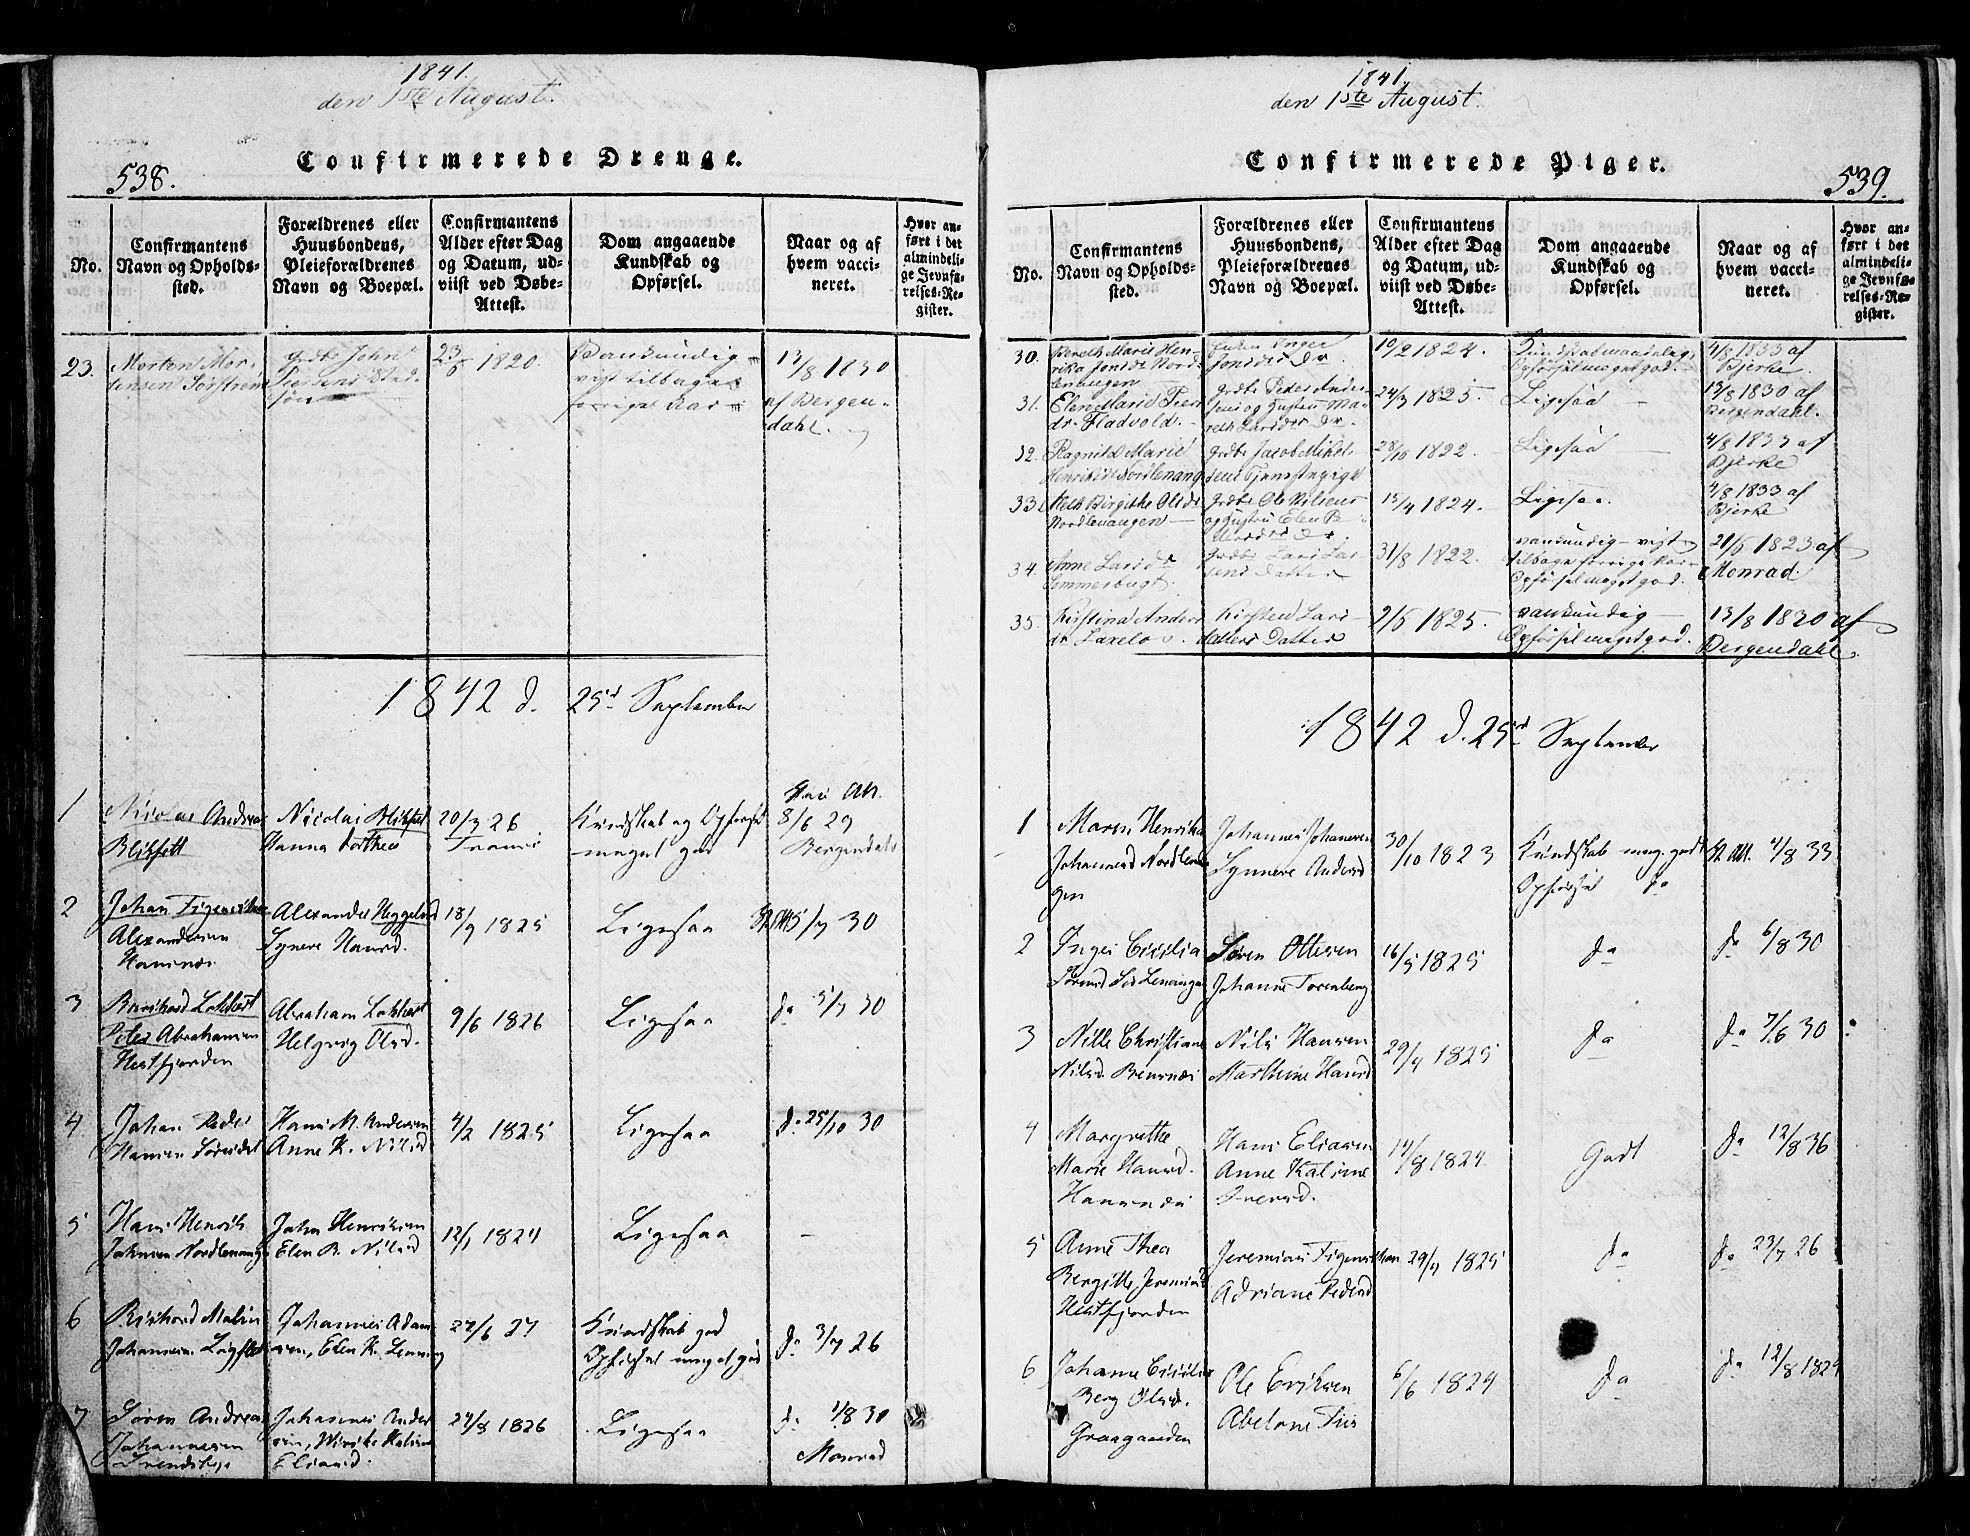 1841.
den 1ste August.
538.
Confirmerede Drenge.
No.
Confirmantens
Navn og Opholds-
sted.
Forældrenes eller
Huusbondens,
Pleieforældrenes
Navn og Boepæl.
Confirmantens
Alder efter Dag
og Datum, ud-
viist ved Døbe-
Attest.
Dom angaaende
Kundskab og
Opførsel.
Naar og af
hvem vacci-
neret.
Hvor an-
ført i det
almindeli-
ge Jevnfø-
relses-Re-
gister.
23.
Morten Mor-
tensen Sørstrøm
Grdbr John
23/5 1820.
Vankundig
vist tilbage
forrige Aar
13/8 1830
af Bergen-
dahl.
1842 d. 25d September
1
Nicolai Andreas
Blixfelt
Nicolai Blixfelt
Hanna Dorthea
20/3 26
Tromsø
Kundskab og Opførsel
meget god
8/6 29
Bergendahl
2
Johan Figenschou
Alexandersen
Hansnæs
Alexander Heggelund
Synere Hansd.
18/9 1825
Ligesaa
5/7 30
3
Burchard Lockert
Peter Abrahamsen
Hestfjorden
Abraham Lockert
Helgvig Olsd.
9/6 1826
Ligesaa
do 5/7 30
4
Johan Peder
Hansen Søreidet
Hans M. Andersen
Anne K. Nilsd
4/2 1825
Ligesaa
do 25/10 30
5
Hans Henrik
Johnsen Nordlenangen
John Henriksen
Elen B. Nilsd
12/1 1824
Ligesaa
-
6
Richard Malin
Johannesen
Johannes Adam
sen, Elen K.
27/6 27
Kundskab god
Opførsel meget god
do 3/7 26
7
Søren Andreas
Johannesen
Johannes Ander
sen, Wivike Kalrine
Eliasd.
27/8 1826
Ligesaa
do 1/8 30
Monrad
1841.
den 1ste August.
Confirmerede Piger.
539.
No.
Confirmantens
Navn og Opholds-
sted.
Forældrenes eller
Huusbondens,
Pleieforældrenes
Navn og Boepæl.
Confirmantens
Alder efter Dag
og Datum, ud-
viist ved Døbe-
Attest.
Dom angaaende
Kundskab og
Opførsel.
Naar og af
hvem vacci-
neret.
Hvor an-
ført i det
almindeli-
ge Jevnfø-
relses-Re-
gister.
30.
Bereth Marie Hen-
rika Jonsdr Nord-
lenangen
Enken Inger
Jonsdr Dr
19/2 1824.
Kundskab maadelig,
Opførsel meget god.
4/8 1833 af
Bjerke.
31.
Elen Marie Peders
dr. Fladvold.
Grdbr Peder Ander
sens og Hustru Ma-
reth Larsdr Dr.
24/3 1825.
Ligesaa
13/8 1830 af
Bergendahl.
32.
Ragnild Marie
Henriksdr Nordlenang
Grdbr Jacob Mikel
sens Tjenestepige
28/10 1822.
Ligesaa
4/8 1833 af
Bjerke
33.
Beth Birgithe Olsdr
Nordlenangen
Grdbr Ole Nilsens
og Hustru Elen Pe
dersdr Dr.
15/4 1824.
Ligesaa.
4/8 1833 af
Bjerke
34.
Anne Larsdr
Sommerbugt.
Grdbr Lars Lar
sens Datter
31/8 1822.
vankundig - vist
tilbage forrige Aar -
Opførsel meget god.
21/6 1823 af
Monrad.
35.
Kirstina Anders
dr
Kirsten Lars
datters Datter
2/6 1825.
vankundig
Opførsel meget god.
13/8 1830 af
Bergendahl.
1842 d. 25d September
1
Maren Henrika
Johannesd Nordlenan
gen
Johannes Johannesen
Synnere Andersd
30/10 1823
Kundskab meg. godt
Opførsel do
4/8 33
2
Inger Cicilia
Sørensd Sør Lenangen
Søren Ottesen
Johanna Torenberg
16/5 1825
do
do 6/8 30
3
Nille Christiane
Nilsd. Brensnæs
Nils Hansen
Marthine Hansd
29/4 1825
do
do 7/6 30
4
Margrethe
Marie Hansd.
Hansnæs
Hans Eliasen
Anne Katrine
Iversd.
14/8 1824
Godt
do 12/8 36
5
Anne Thea
Bergitte Jeremiasd
Hestfjorden
Jeremias Figenschou
Adriane Pedersd
29/4 1825
do
do 23/7 26
6
Johanne Cicilie
Berg Olsd.
Graagaarden
Ole Eriksen
Abelone
6/6 1824
do
do 12/8 1824